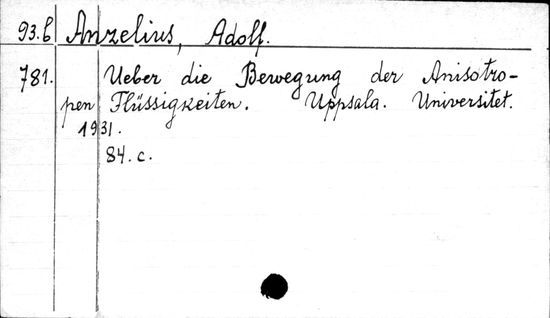 93.б Anzelius, Adolf.
781. Ueber die Bewegung der Anisotro-
pen Flüssigkeiten. Uppsala. Universitet.
1931.
84. c.